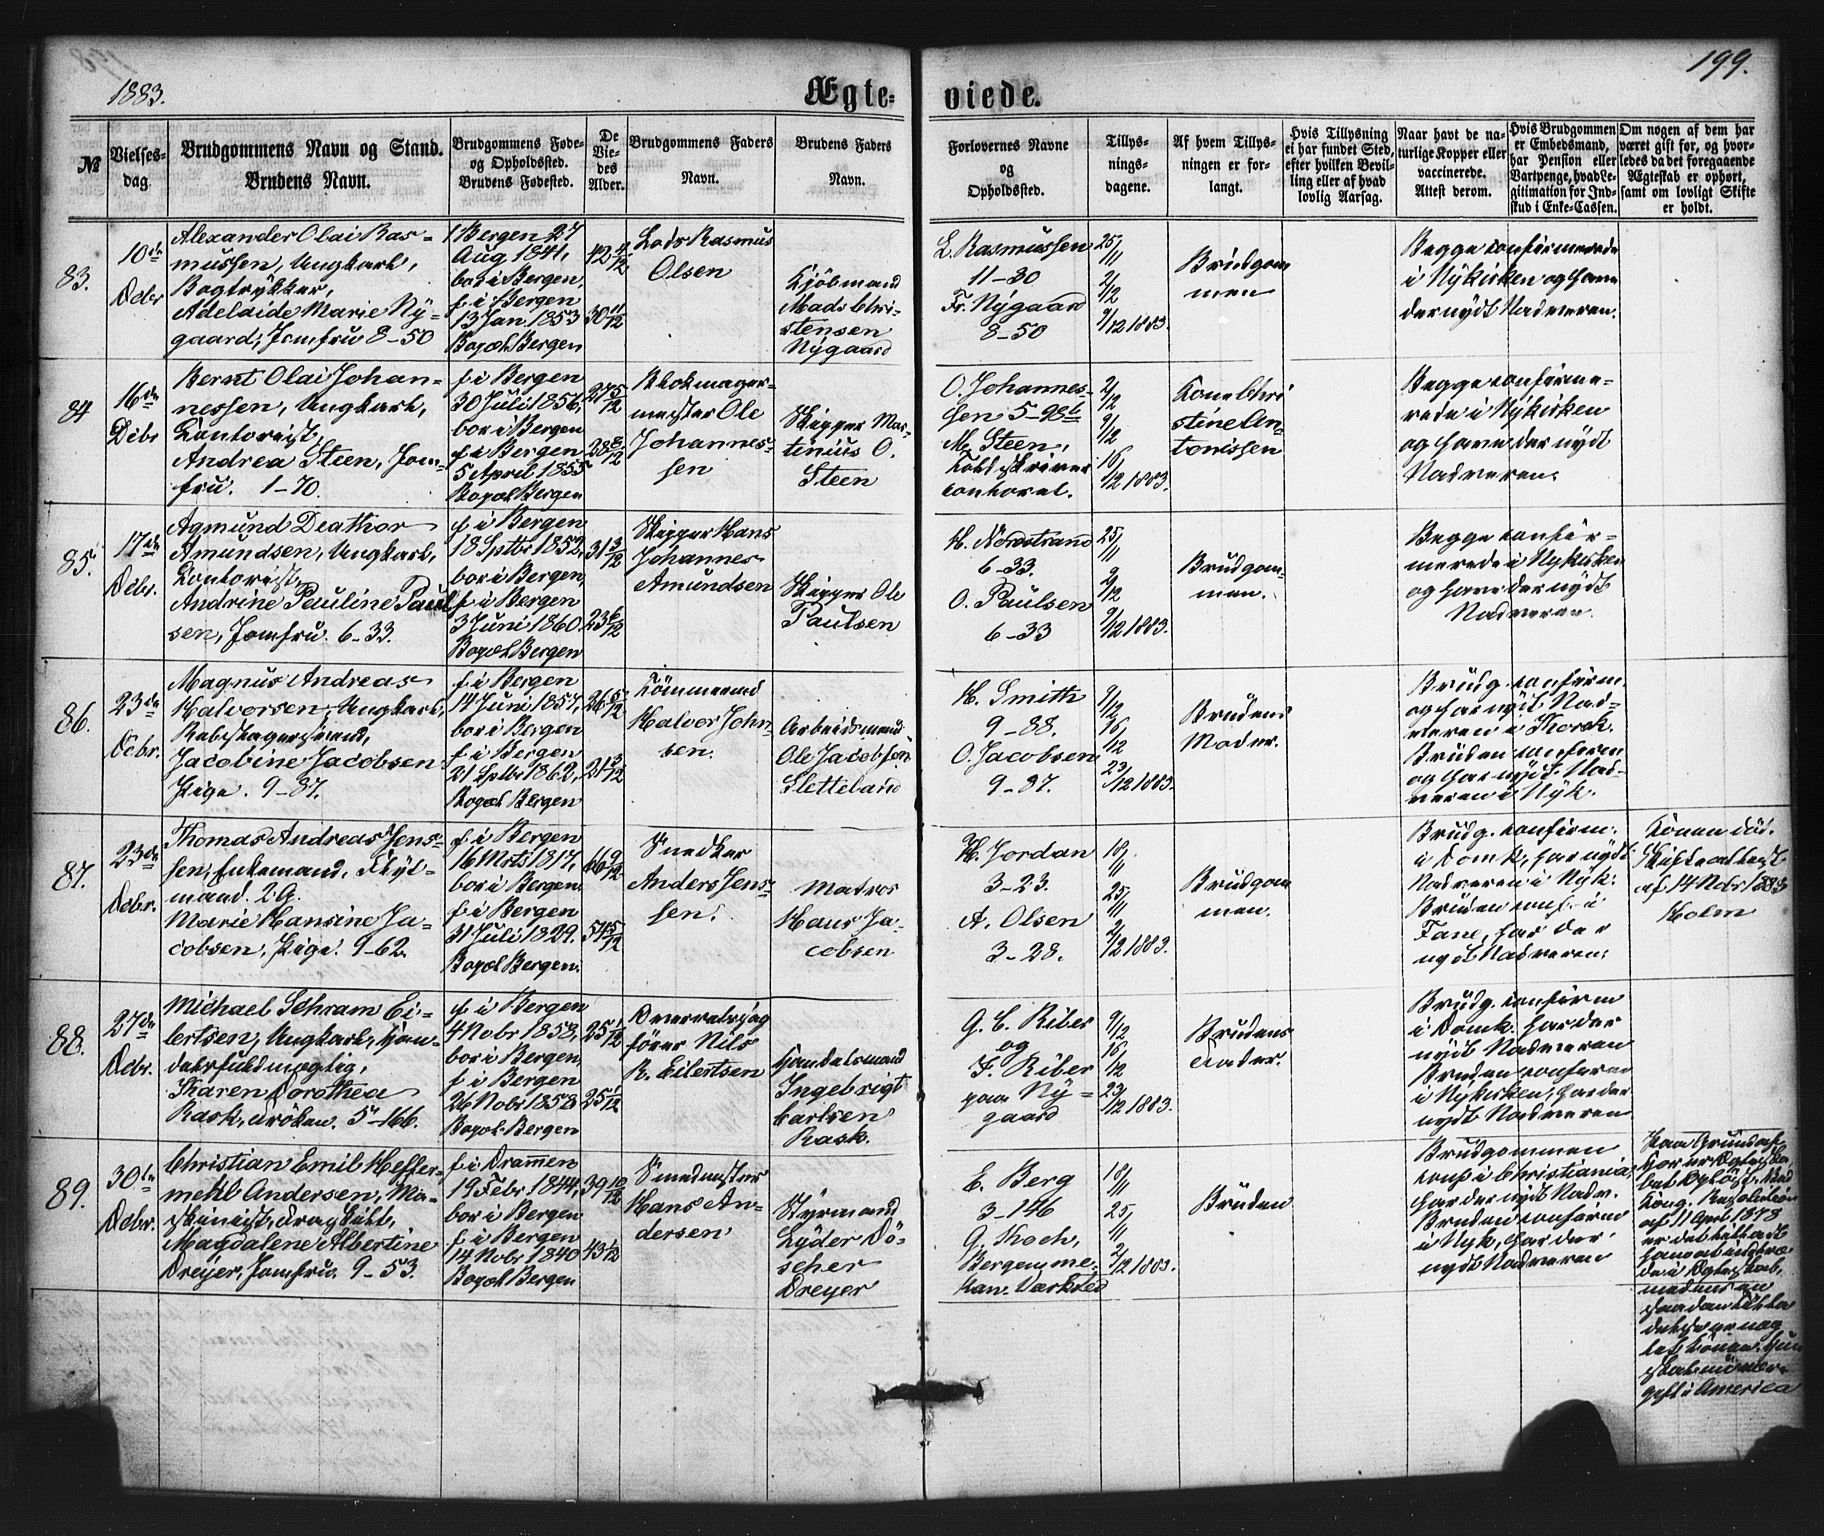 1883.
Ægte-
viede.
199.
№
Vielses-
dag.
Brudgommens Navn og Stand.
Brudens Navn.
Brudgommens Føde-
og Opholdssted.
Brudens Fødested.
De
Vie-
des
Alder.
Brudgommens Faders
Navn.
Brudens Faders
Navn.
Forlovernes Navne
og
Opholdssted.
Tillys-
nings-
dagene.
Af hvem Tillys-
ningen er for-
langt.
Hvis Tillysning
ei har fundet Sted,
efter hvilken Bevil-
ling eller af hvad
lovlig Aarsag.
Naar havt de na-
turlige Kopper eller
vaccinerede.
Attest derom.
Hvis Brudgommen
er Embedsmand,
har Pension eller
Vartpenge, hvad Le-
gitimation for Ind-
skud i Enke-Cassen.
Om nogen af dem har
været gift før, og hvor-
ledes da det foregaaende
Ægteskab er ophørt,
samt om lovligt Skifte
er holdt.
83.
10de
Debr
Alexander Olai Ras-
mussen, Ungkarl,
Bogtrykker,
Adelaide Marie Ny-
gaard, Jomfru 8-50
i Bergen 27
Aug 1841,
bor i Bergen,
f. i Bergen
13 Jan. 1853
Bopæl Bergen
42 4/12
30 11/12
Lods Rasmus
Olsen
Kjøbmand
Mads Chri-
stensen
Nygaard
L. Rasmussen
11-30
Fr. Nygaard
8-50
25/11
2/12
9/12 1883.
Brudgom
men
Begge confirmerede
i Nykirken og have
der nydt Nadveren.
84
16de
Debr
Bernt Olai Johan-
nessen, Ungkarl,
Contorist,
Andrea Steen, Jom-
fru. 1-70.
f. i Bergen
30 Juli 1856,
bor i Bergen
f. i Bergen
5 April 1855
Bopæl Bergen
27 5/12
28 8/12
Blokmager-
mester Ole
Johannes-
sen
Skipper Mar-
tinius O.
Steen
O. Johannes-
sen 5-98b
M. Steen,
Toldskriver
contoret.
2/12
9/12
16/12 1883.
Kone Chri
stine An-
tonissen
Begge confirme-
rede i Nykirken
og have der nydt
Nadveren.
85.
17de
Debr.
Agmund Deathor
Amundsen, Ungkarl,
Contorist,
Andrine Pauline Paul
sen, Jomfru. 6-33.
f. i Bergen
18 Sptbr 1852,
bor i Bergen,
f. i Bergen
3 Juni 1860
Bopæl Bergen
31 3/12
23 6/12
Skipper Hans
Johannes
Amundsen
Skipper Ole
Paulsen
H. Nordstrand
6-33.
O. Paulsen
6-33
25/11
2/12
9/12 1883.
Brudgom-
men.
Begge confir-
merede i Nykirken
og have der nydt
Nadveren.
86.
23de
Debr.
Magnus Andreas
Halvorsen, Ungkarl,
Rebslagersvend,
Jacobine Jacobsen
Pige. 9-87.
f. i Bergen
14 Juni 1857,
bor i Bergen
f. i Bergen
21 Sptbr 1862,
Bopæl Bergen
26 6/12
21 3/12
Tømmermd
Halvor John-
sen.
Arbeidsmand
Ole Jacobsen
Sletteland
H. Smith
9-88.
O. Jacobsen
9-87.
9/12
16/12
23/12 1883.
Brudens
Moder.
Brudg. confirm.
og har nydt Nad-
veren i Korsk.
Bruden confirm
og har nydt Nad-
veren i Nyk.
87.
23de
Debr.
Thomas Andreas Jens-
sen, Enkemand, Flyt-
mand. 29.
Marie Hansine Ja-
cobsen, Pige. 9-62.
f. i Bergen
16 Mrts 1817,
bor i Bergen
f. i Bergen
31 Juli 1829.
Bopæl Bergen.
66 9/12
54 5/12
Snedker
Anders Jens-
sen.
Matros
Hans Ja-
cobsen
H. Jordan
3-23.
A. Olsen
3-28.
18/11
25/11
2/12 1883.
Brudgom
men.
Brudg. confirm.
i Domk, har nydt
Nadveren i Nyk.
Bruden conf. i
Fane, har der
nydt Nadveren.
Konen død.
Skifteattest
af 14 Nobr 1883
Holm
88.
27de
Debr.
Michael Schram Ei-
lertsen, Ungkarl, Han-
delsfuldmægtig,
Karen Dorothea
Rask, Frøken. 5-166.
f. i Bergen
4 Nobr 1858,
bor i Bergen,
f. i Bergen
26 Nobr 1858
Bopæl Bergen
25 1/12
25 1/12
Overretssag
fører Nils
R. Eilertsen
Handelsmand
Ingebrigt
Carlsen
Rask.
G. C. Riber
og
F. Riber
paa Ny-
gaard
9/12
16/12
23/12 1883.
Brudens
Fader.
Brudg. confirm
i Domk. har der
nydt Nadveren
Bruden confirm
i Nykirken, har der
nydt Nadveren
89.
30te
Debr.
Christian Emil Heffer-
mehl Andersen, Ma-
skinist, fraskilt,
Magdalene Albertine
Dreyer, Jomfru. 9-53.
f. i Drammen
19 Febr 1844,
bor i Bergen
f. i Bergen
14 Nobr 1840
Bopæl Bergen
39 10/12
43 1/12
Smedmester
Hans An-
dersen
Styrmand
Lyder Dö-
scher
Dreyer
E. Berg
3-146
G. Koch,
Bergens me-
kan. Verksted
18/11
25/11
2/12 1883.
Bruden
Brudgommen
conf i Christiania,
har der nydt Nadv.
Bruden confirm
i Nyk, har der
nydt Nadveren
bet Opløst. Ved
Kong. Resolution
af 11 April 1878
er det tilladt
de i Ægteskab,
gift i America